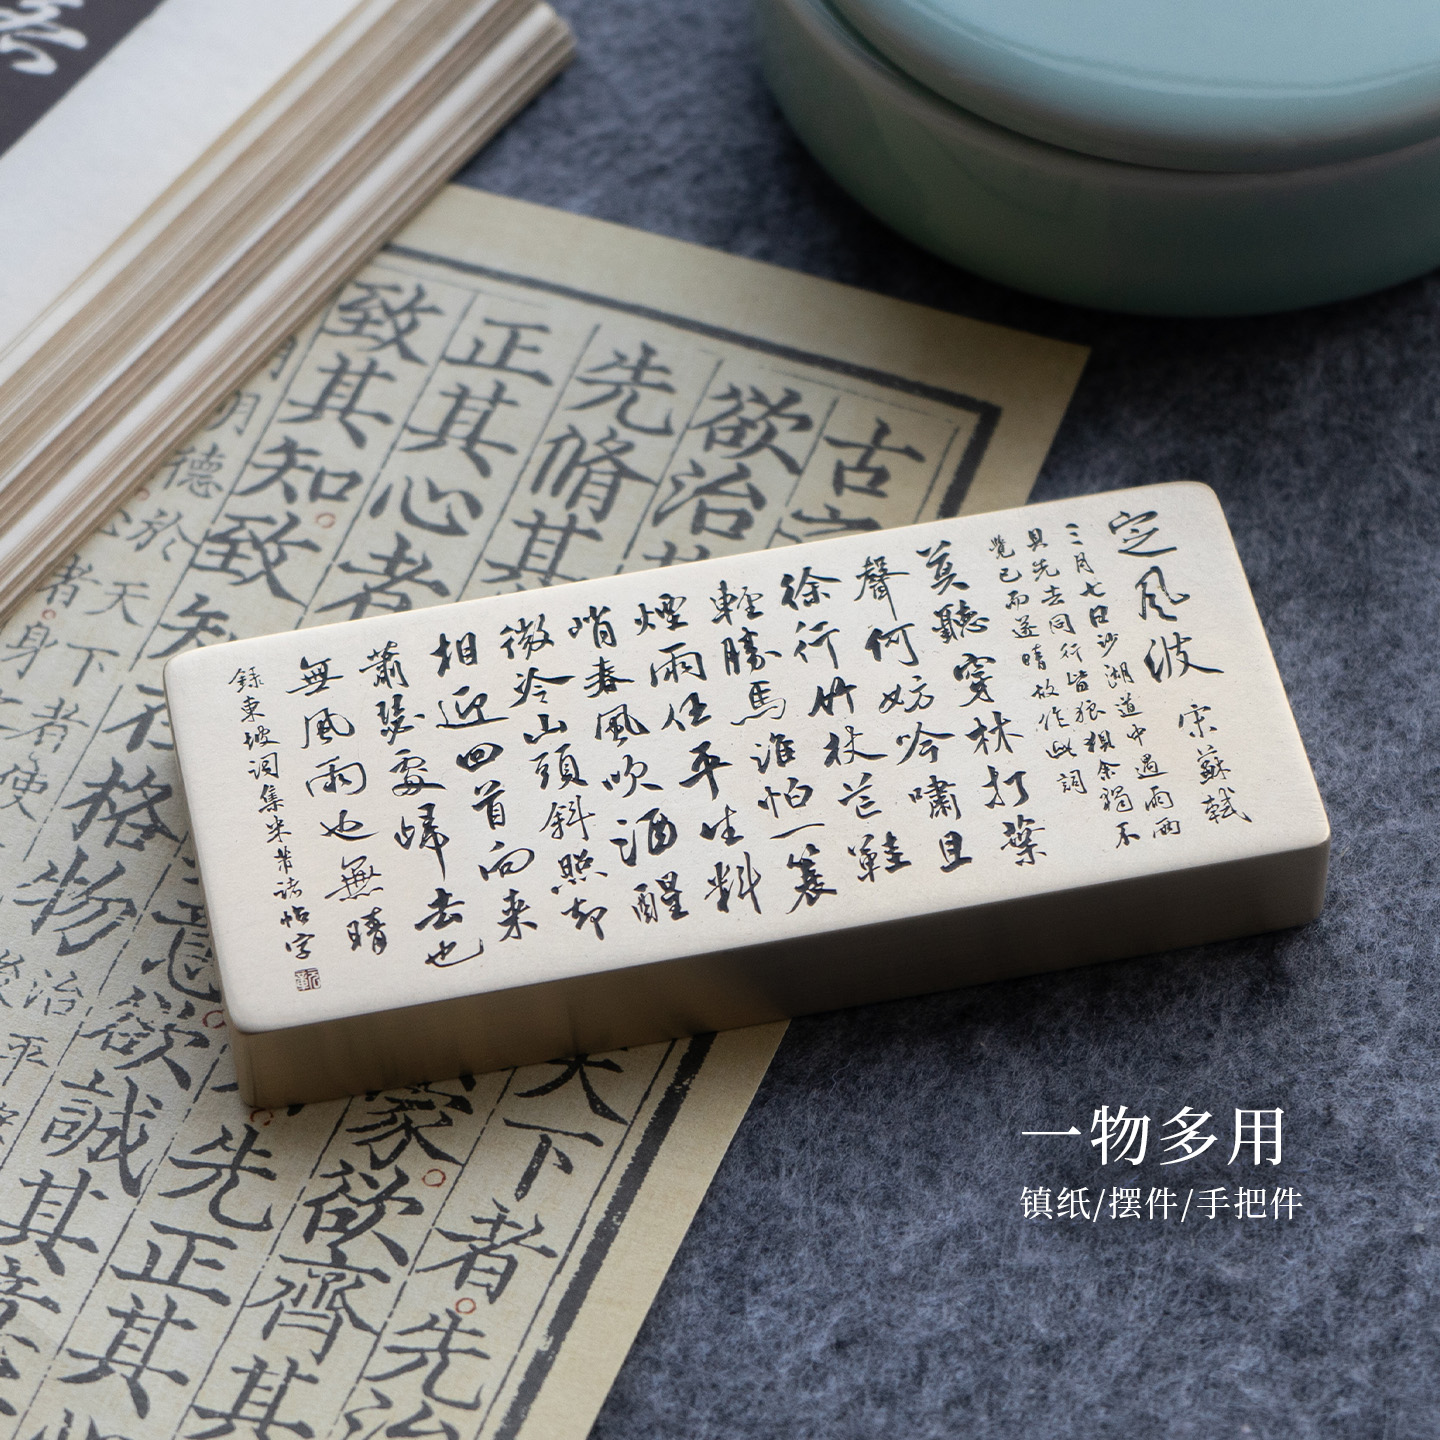 定風波 宋蘇軾
三月七日沙湖道中遇雨雨
具先去同行皆狼狽余獨不
覺已而遂晴故作此詞
莫聽穿林打葉
聲何妨吟嘯且
徐行竹杖芒鞋
輕勝馬誰怕一蓑
煙雨任平生料
峭春風吹酒醒
微冷山頭斜照却
相迎回首向来
蕭瑟處歸去也
無風雨也無晴
錄東坡詞集米芾諸帖字
古
天下者先治
欲治其
家欲齊其
先脩其
先正其
正其心者
意欲誠其
致其知致知在格物
明德於天下者
一物多用
镇纸/摆件/手把件